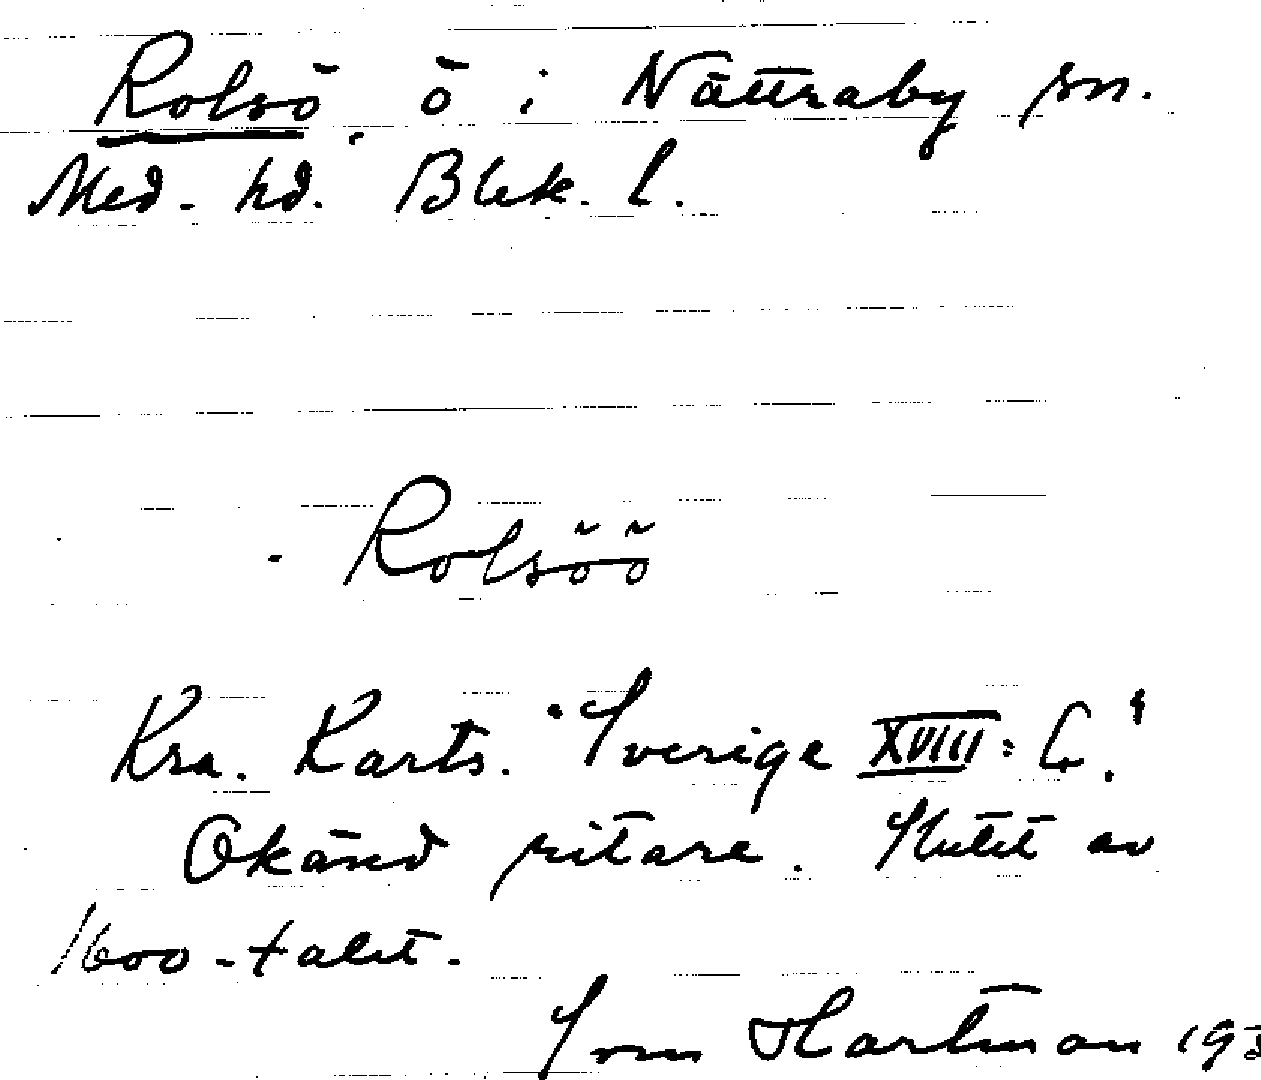 Rolsö, ö i Nättraby sn.
Med. hd. Blek. l.
Rolsöö
Kra. Karts. "Sverige XVIII: 6."
Okänd ritare. Slutet av
1600-talet.
Hartman 193